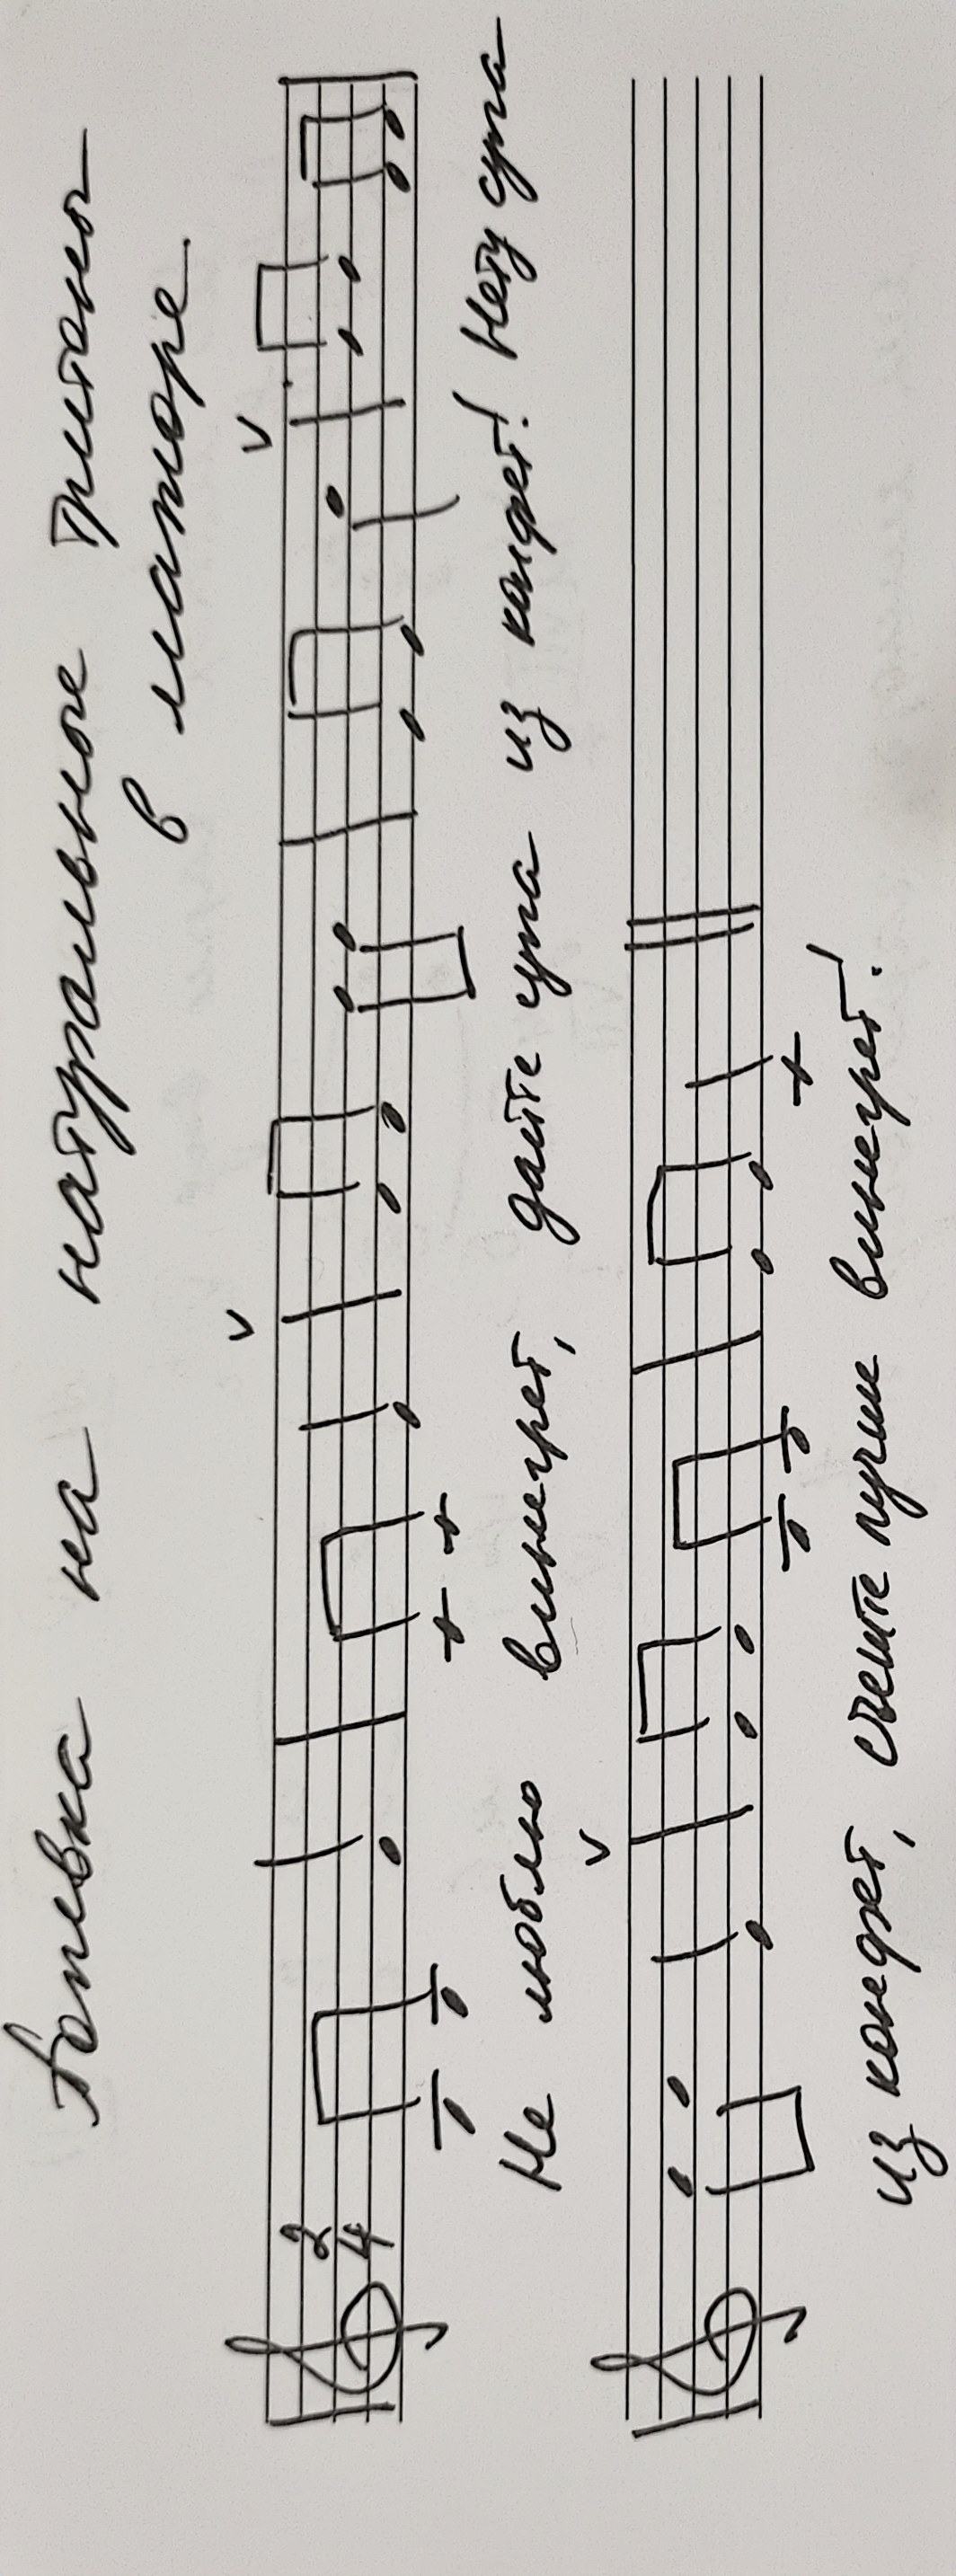 Попевка на натуральные тритоны
в мажоре
2
4
Не люблю винегрет, дайте супа из конфет! Нету супа
из конфет, съешьте лучше винегрет!